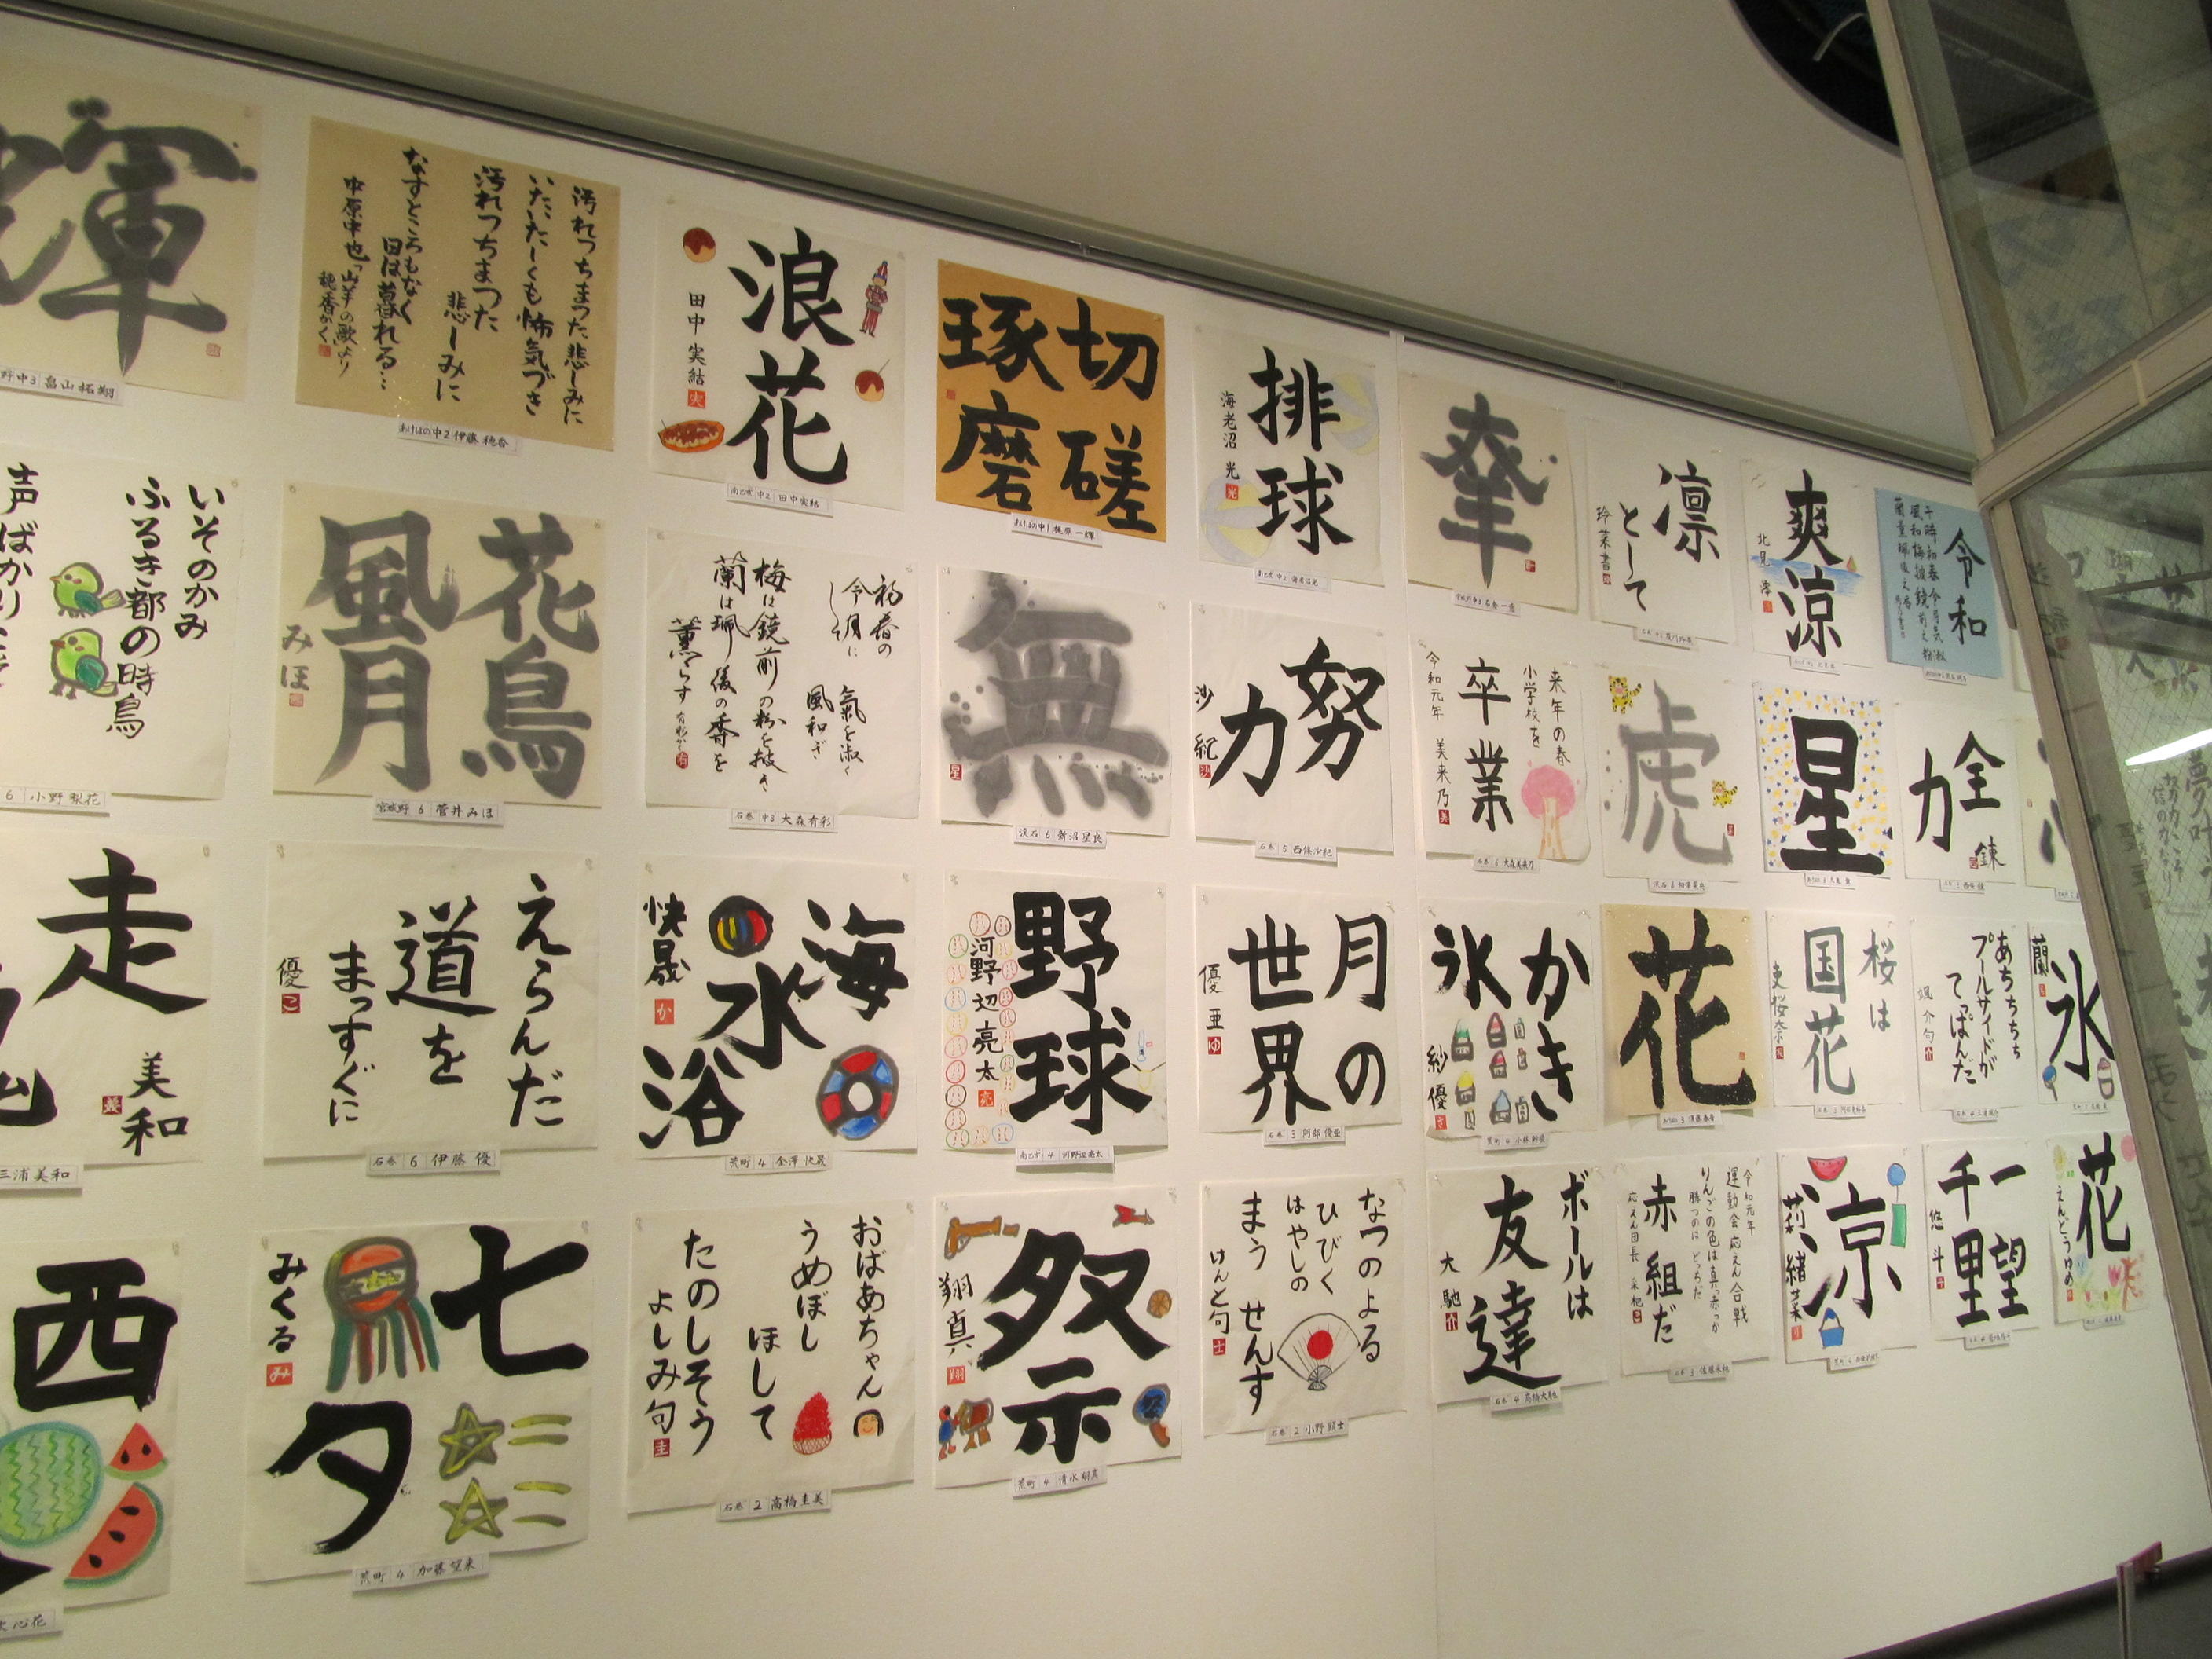 輝
野中3 畠山拓翔
汚れつちまつた悲しみに
いたいたしくも怖気づき
汚れつちまつた
悲しみに
なすところもなく
日は暮れる…
中原中也「山羊の歌」より
穂香かく
あけぼの中2 伊藤穂香
浪花
田中実結
実
中2 田中実結
切磋
琢磨
あけぼの中1 梶原一輝
排球
海老沼光
光
凛
として
玲菜書
爽涼
北見
令和
いそのかみ
ふるき都の時鳥
声ばかりこそ
6 小野梨花
花鳥
風月
みほ
宮城野 6 菅井みほ
初春の
令月に
して
氣を淑く
風和ぎ
梅は鏡前の粉を披き
蘭は珮後の香を
薫らす
石巻 中3 大森有彩
無
6 新沼星良
努
力
沙紀
沙
石巻 5 西條沙紀
来年の春
小学校を
卒業
令和元年 美来乃
美
石巻 6 大森美来乃
虎
星
全
力
錬
走
美和
三浦美和
えらんだ
道を
まっすぐに
優
石巻 6 伊藤優
海
水
浴
快晟
か
荒町 4 金澤快晟
野球
河野辺亮太
亮
4 河野辺亮太
月の
世界
優亜
ゆ
石巻 3 阿部優亜
かき
氷
紗優
荒町 4 小林紗優
花
桜は
国花
吏桜奈
あちちちち
プールサイドが
てっぽんだ
颯介句
氷
蘭
西
心花
七
夕
みくる
み
荒町 4 加藤望来
おばあちゃん
うめぼし
ほして
たのしそう
よしみ句
圭
石巻 2 高橋圭美
祭
翔真
翔
荒町 4 清水翔真
なつのよる
ひびく
はやしの
まう せんす
けんと句
士
石巻 2 小野顕士
ボールは
友達
大馳
石巻 4 高橋大馳
令和元年
運動会 応えん合戦
りんごの色は真っ赤っか
勝つのは どっちだ
赤組だ
応えん団長 采杷
涼
莉緒菜
一望
千里
悠斗
花
えんどうゆめ